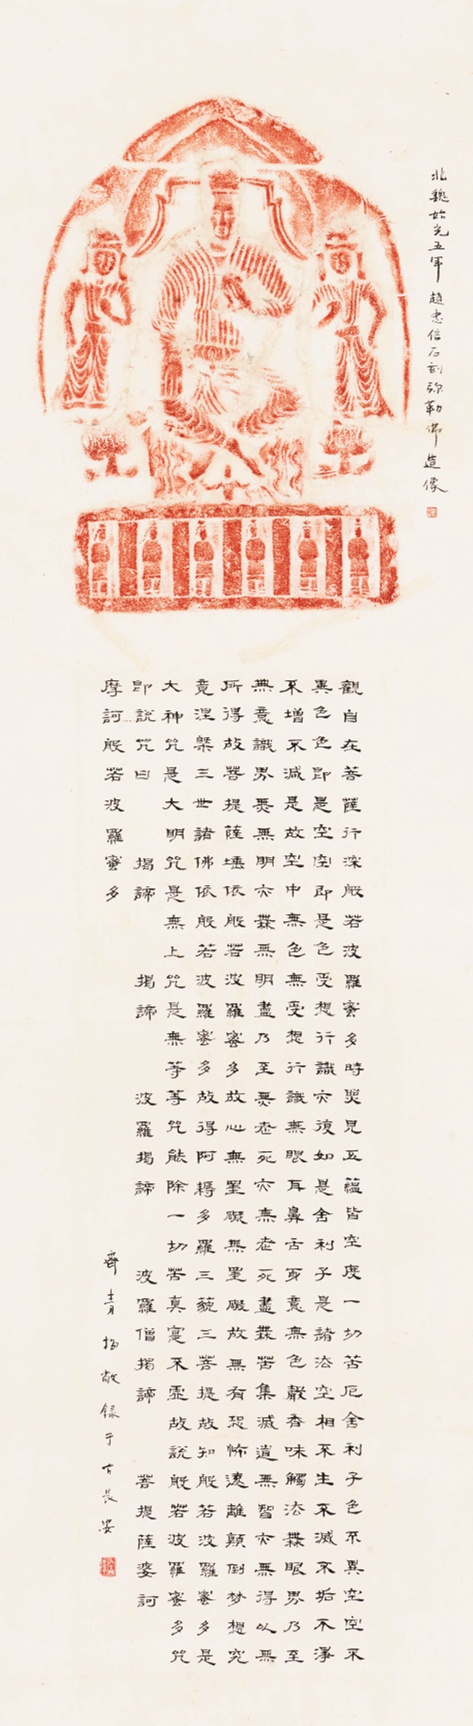 北魏始光五年 趙忠信石刻弥勒佛造像
觀自在菩薩行深般若波羅蜜多時照見五蘊皆空度一切苦厄舍利子色不異空空不
異色色即是空空即是色受想行識亦復如是舍利子是諸法空相不生不滅不垢不淨
不增不減是故空中無色無受想行識無眼耳鼻舌身意無色聲香味觸法無眼界乃至
無意識界無無明亦無無明盡乃至無老死亦無老死盡無苦集滅道無智亦無得以無
所得故菩提薩埵依般若波羅蜜多故心無罣礙無罣礙故無有恐怖遠離顛倒梦想究
竟涅槃三世諸佛依般若波羅蜜多故得阿耨多羅三藐三菩提故知般若波羅蜜多是
大神咒是大明咒是無上咒是無等等咒能除一切苦真寔不虛故說般若波羅蜜多咒
即說咒曰 揭諦 揭諦 波羅揭諦 波羅僧揭諦 菩提薩婆訶
摩訶般若波羅蜜多
齊青拓敬録于古長安